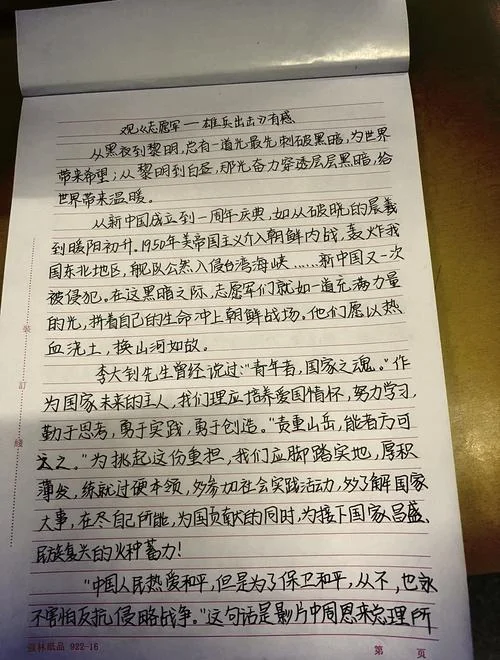 观《志愿军——雄兵出击》有感
从黑夜到黎明，总有一道光最先刺破黑暗，为世界
带来希望；从黎明到白昼，那光奋力穿透层层黑暗，给
世界带来温暖。
从新中国成立到一周年庆典，如从破晓的晨曦
到暖阳初升。1950年美帝国主义介入朝鲜内战，轰炸我
国东北地区，舰队公然入侵台湾海峡……新中国又一次
被侵犯。在这黑暗之际，志愿军们就如一道充满力量
的光，拼着自己的生命冲上朝鲜战场。他们愿以热
血浇土，换山河如故。
李大钊先生曾经说过："青年者，国家之魂。"作
为国家未来的主人，我们理应培养爱国情怀，努力学习，
勤于思考，勇于实践，勇于创造。"责重山岳，能者方可
当之。"为挑起这份重担，我们应脚踏实地，厚积
薄发，练就过硬本领，多参加社会实践活动，多了解国家
大事，在尽自己所能，为国贡献的同时，为接下国家昌盛、
民族复兴的火种蓄力！
"中国人民热爱和平，但是为了保卫和平，从不，也永
不害怕反抗侵略战争。"这句话是影片中周恩来总理所
装
订
线
强林纸品 922-16
第 页